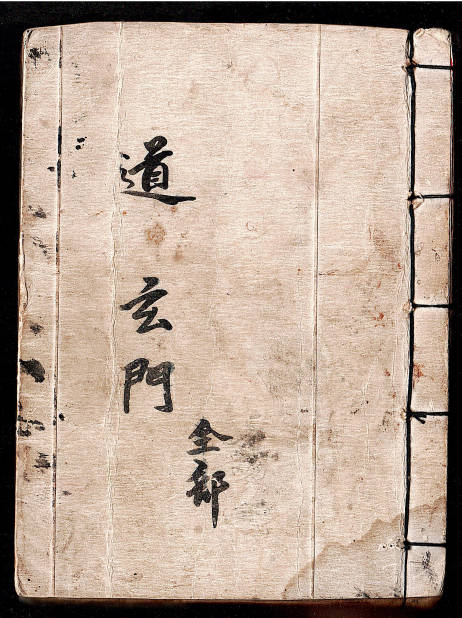 道玄門
全部